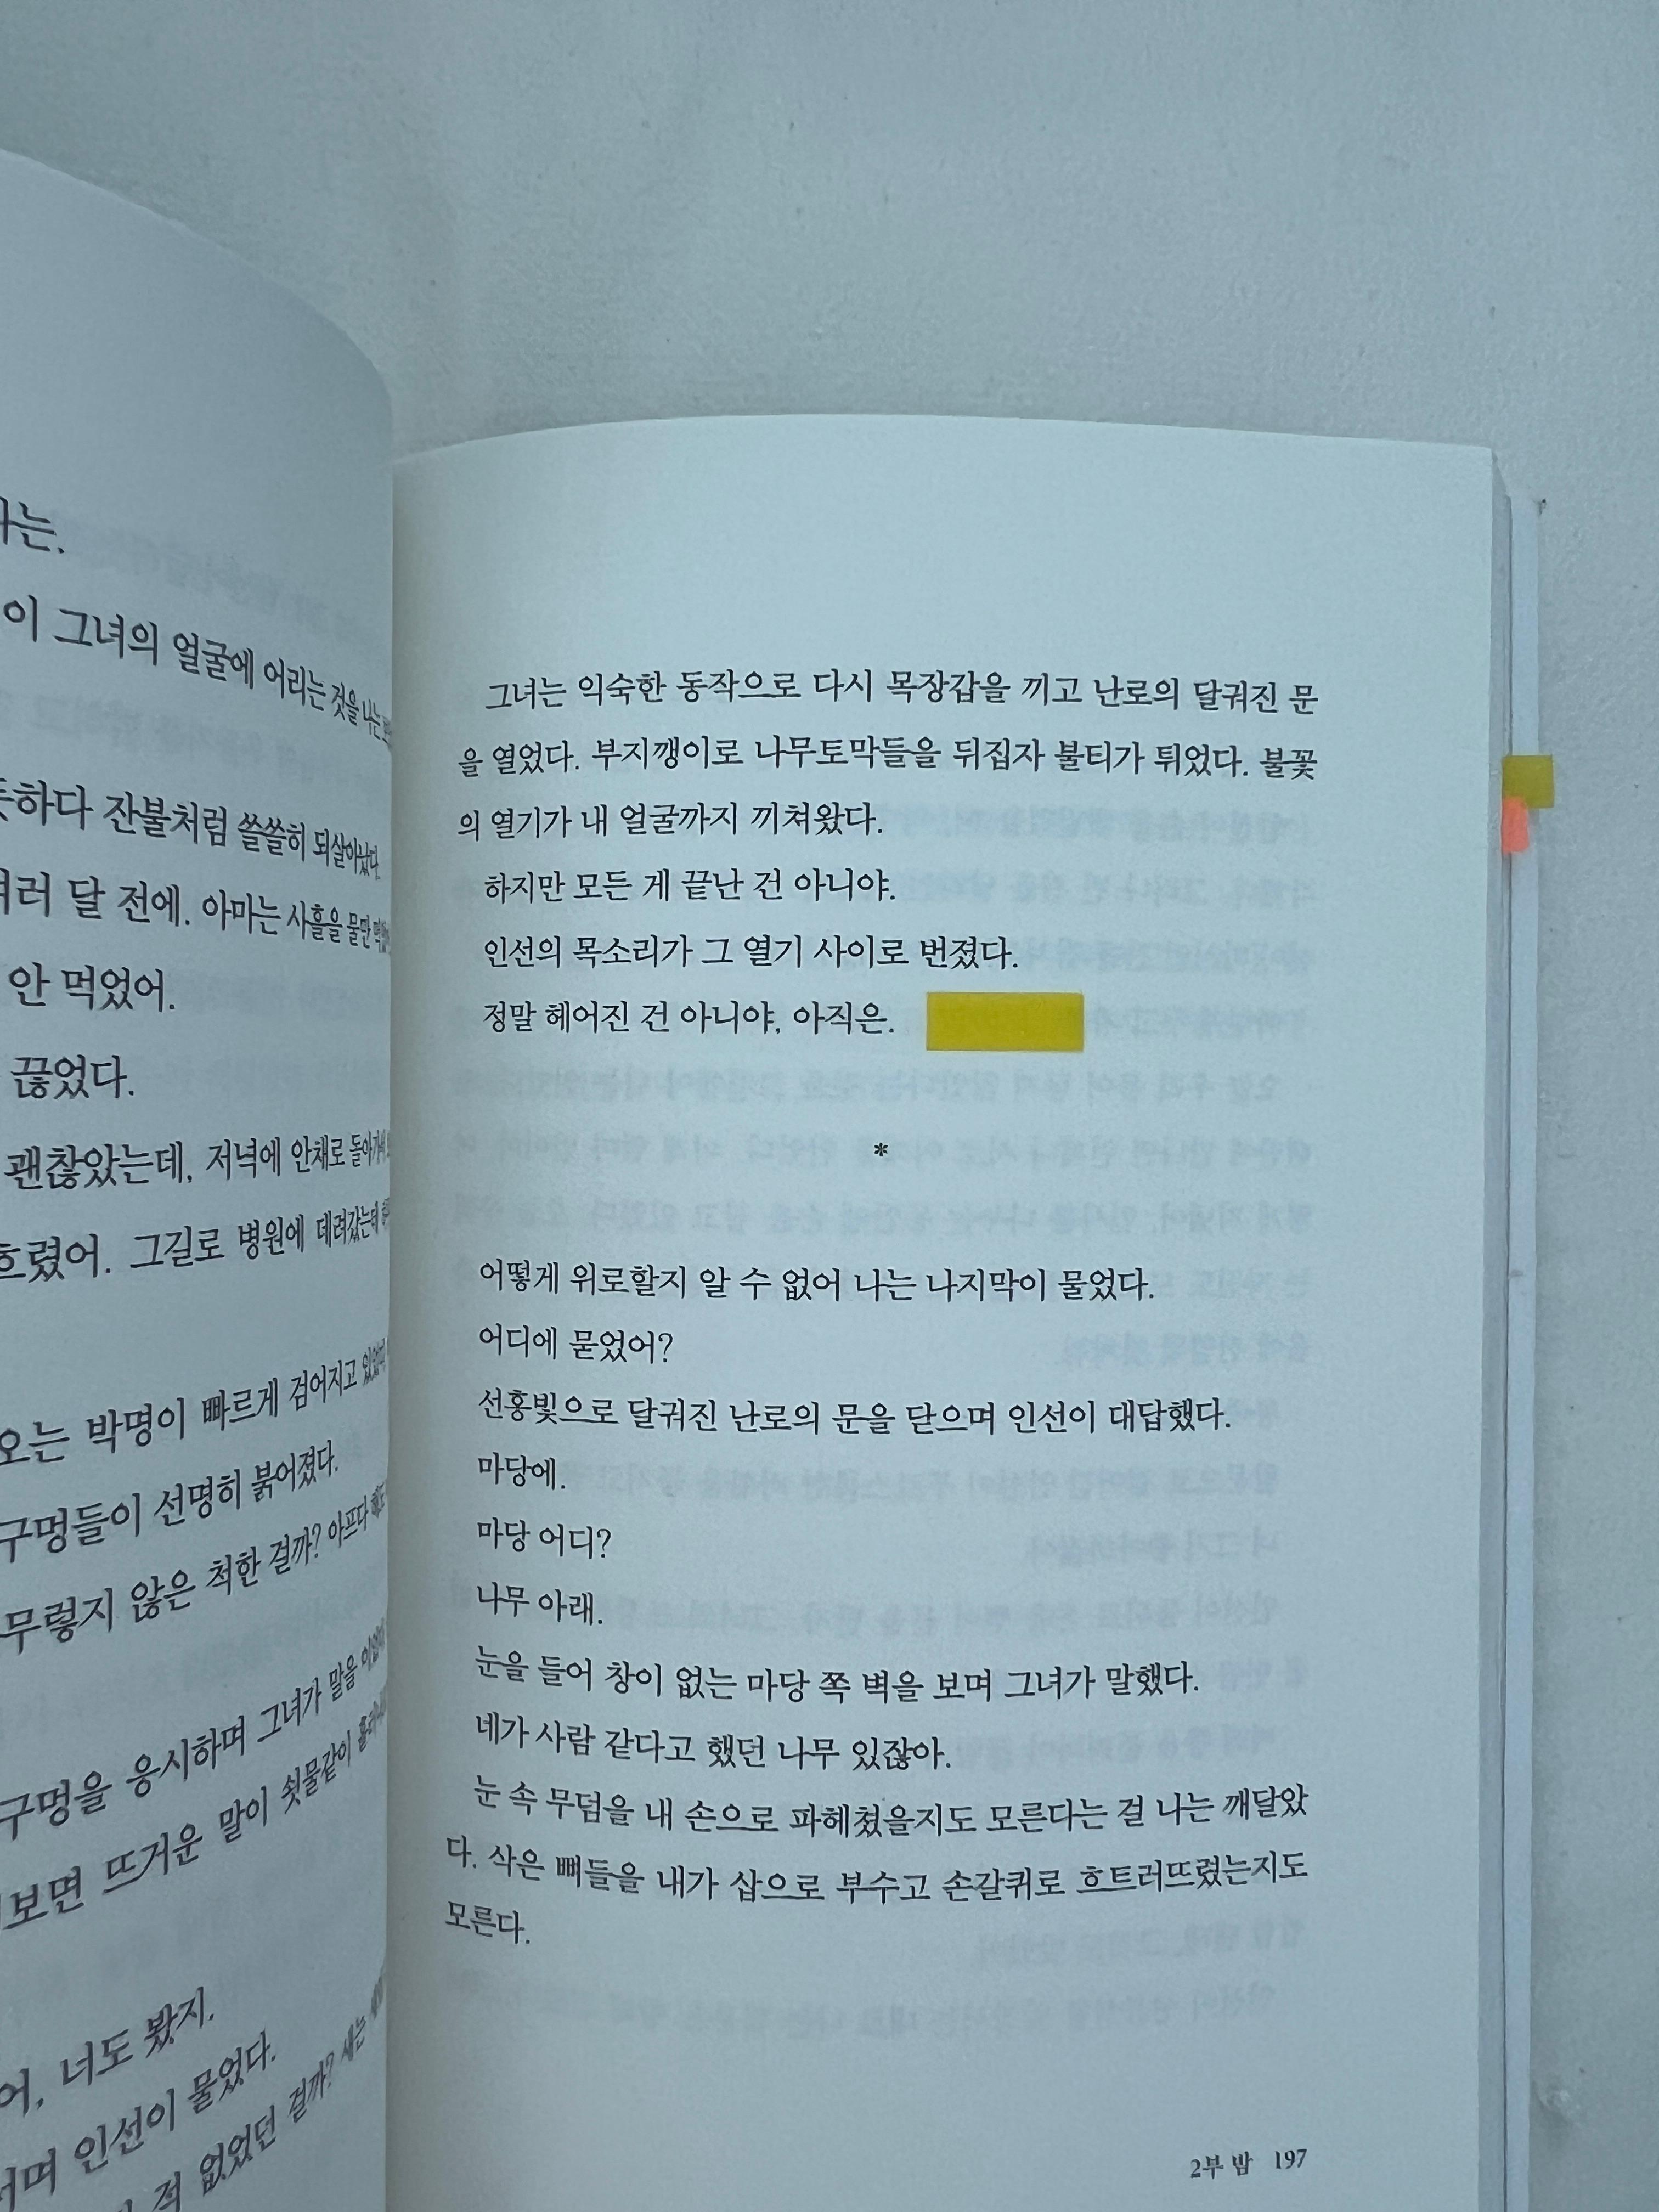 는.
이 그녀의 얼굴에 어리는 것을 나는
하다 잔불처럼 쓸쓸히 되살아났다.
달 전에. 아마는 사흘을 물만
안 먹었어.
끊었다.
괜찮았는데, 저녁에 안채로
흐렸어. 그길로 병원에 데려갔는데
오는 박명이 빠르게 검어지고
구멍들이 선명히 붉어졌다.
무렇지 않은 척한 걸까? 아프다
구멍을 응시하며 그녀가 말을
보면 뜨거운 말이 쇳물같이
어, 너도 봤지.
며 인선이 물었다.
적 없었던 걸까? 새는
그녀는 익숙한 동작으로 다시 목장갑을 끼고 난로의 달궈진 문
을 열었다. 부지깽이로 나무토막들을 뒤집자 불티가 튀었다. 불꽃
의 열기가 내 얼굴까지 끼쳐왔다.
하지만 모든 게 끝난 건 아니야.
인선의 목소리가 그 열기 사이로 번졌다.
정말 헤어진 건 아니야, 아직은.
*
어떻게 위로할지 알 수 없어 나는 나지막이 물었다.
어디에 묻었어?
선홍빛으로 달궈진 난로의 문을 닫으며 인선이 대답했다.
마당에.
마당 어디?
나무 아래.
눈을 들어 창이 없는 마당 쪽 벽을 보며 그녀가 말했다.
네가 사람 같다고 했던 나무 있잖아.
눈 속 무덤을 내 손으로 파헤쳤을지도 모른다는 걸 나는 깨달았
다. 삭은 뼈들을 내가 삽으로 부수고 손갈퀴로 흐트러뜨렸는지도
모른다.
2부 밤 197